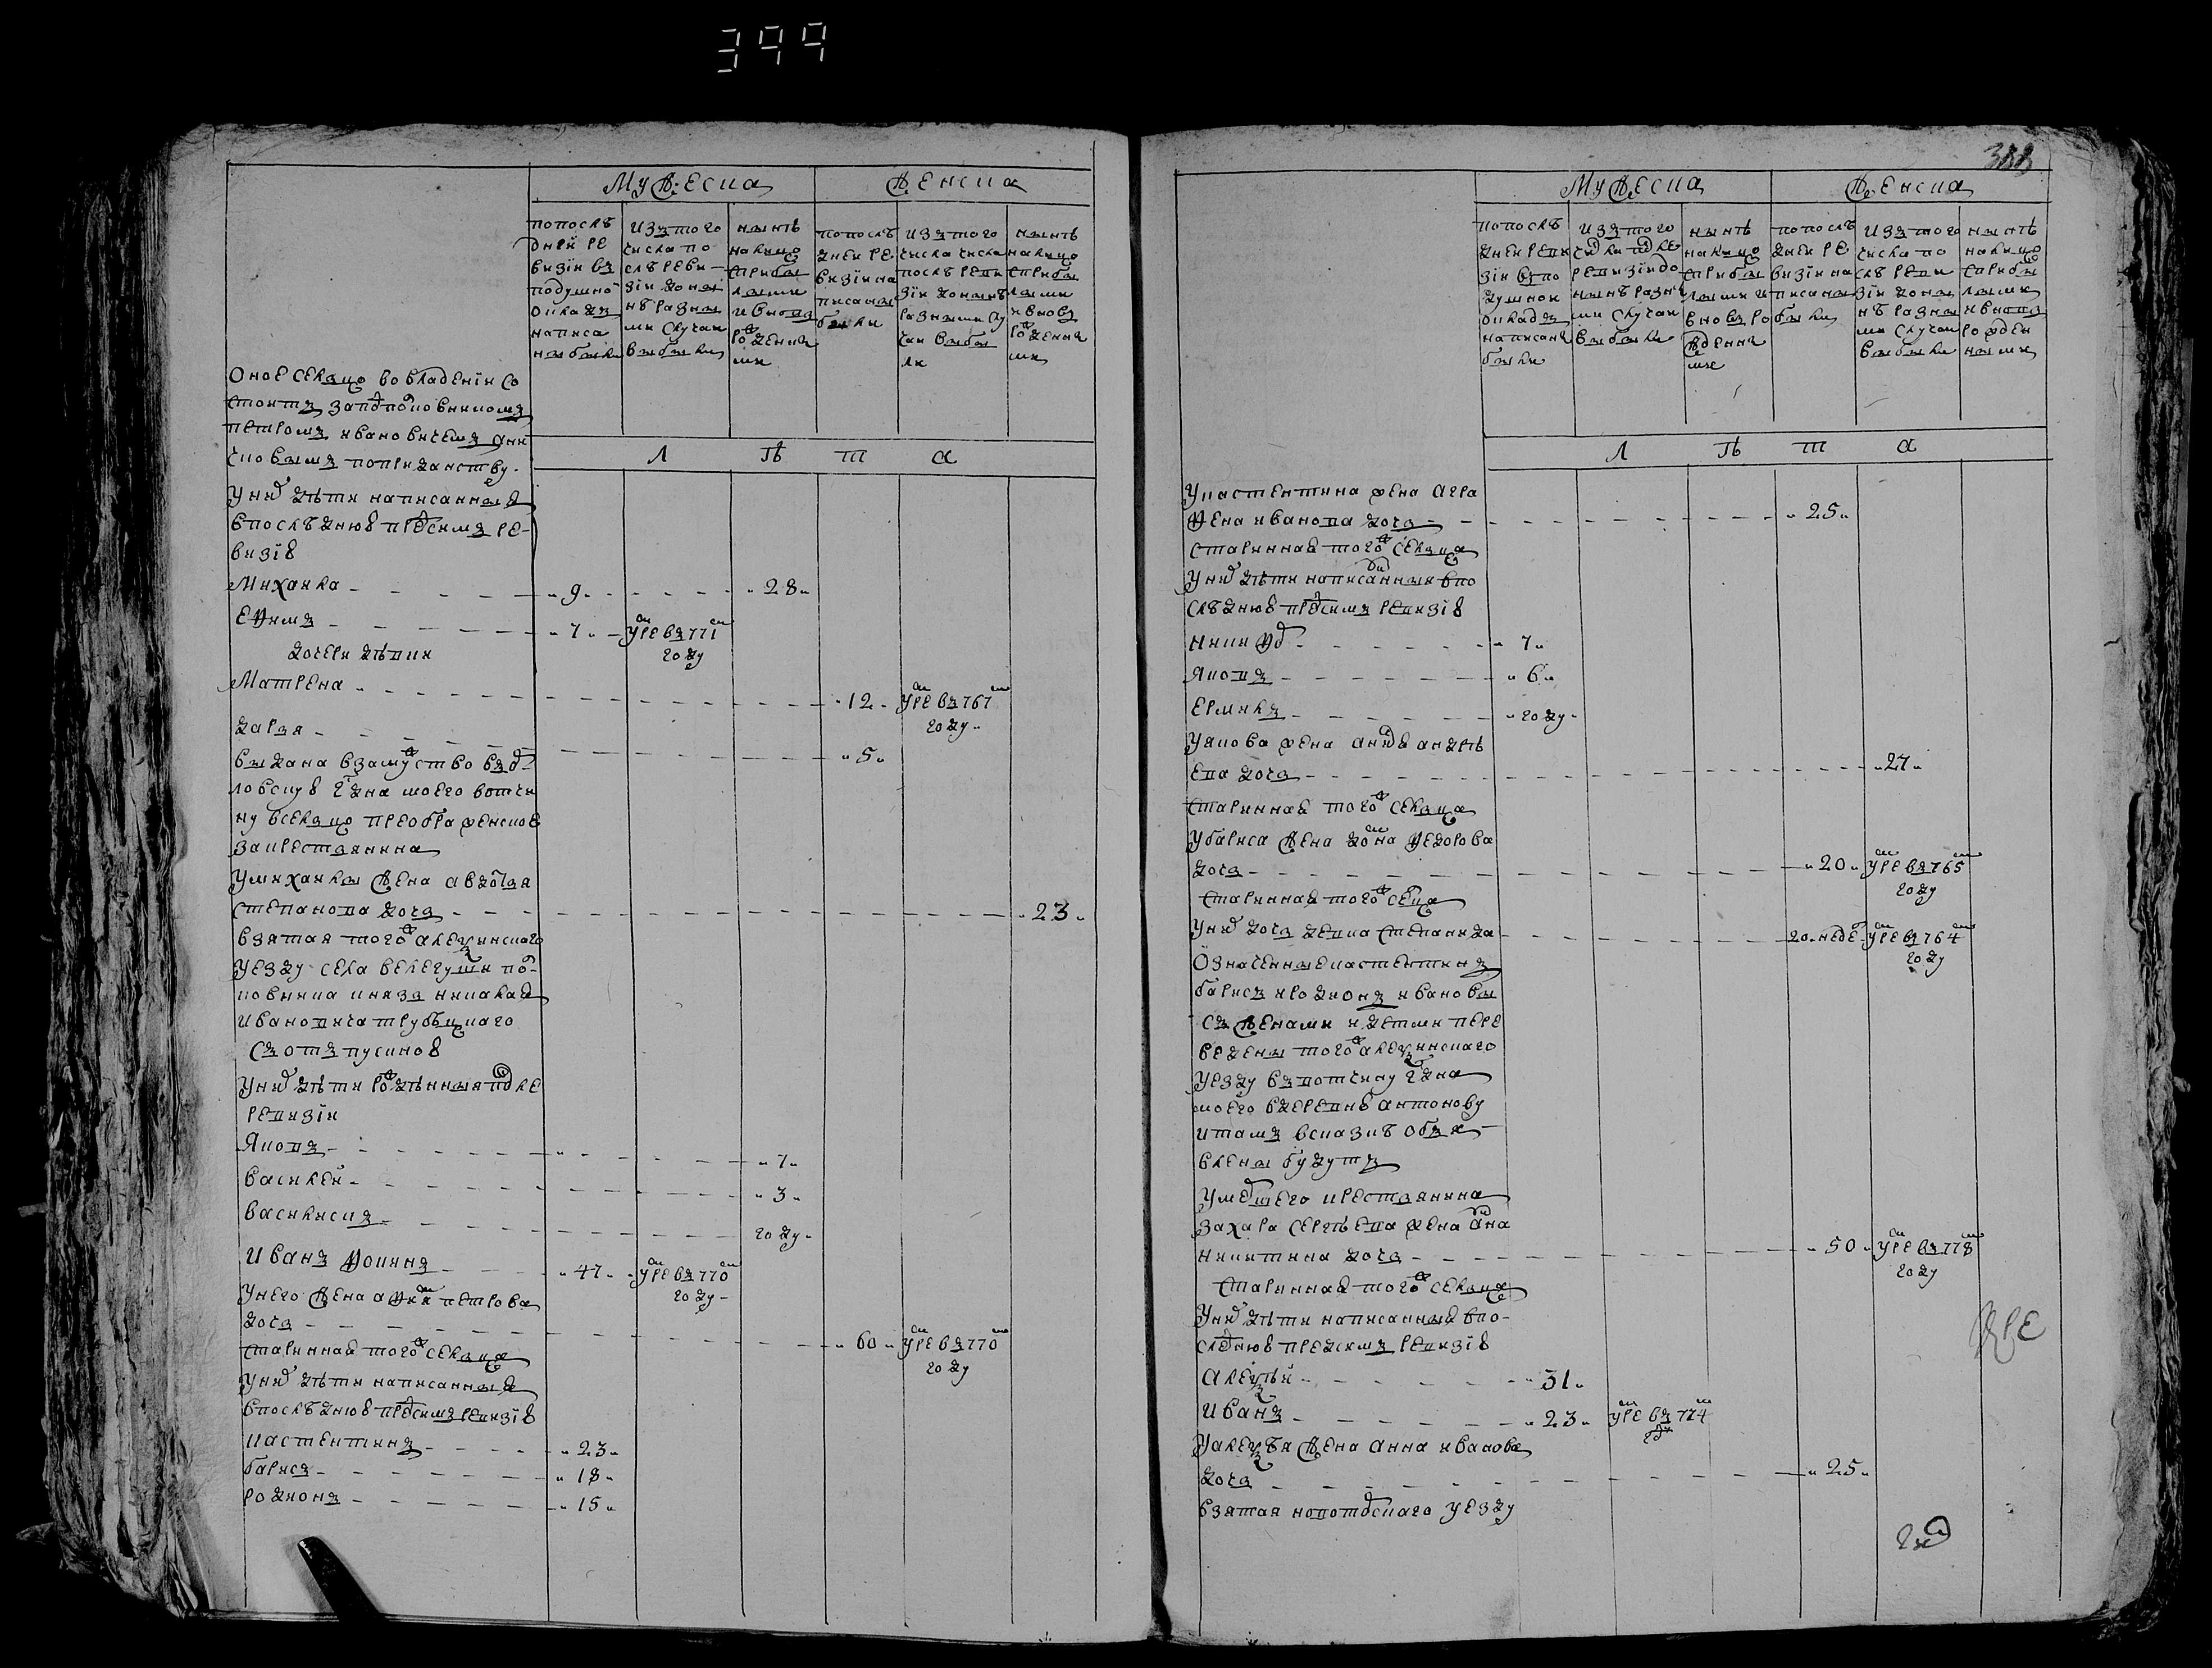 399
Мужеска
Женска
попослѣ
дней ре
визiи въ
подушно
окладъ
написа
ны были
изътого
числа по
слѣ реви
зiи доны
нѣ разны
ми случаи
выбыли
нынѣ
налицо
сприбы
лыми
и вновь
рожденны
ми
попослѣ
дней ре
визiи на
писаны
были
изътого
числа числа
послѣ реви
зiи донынѣ
разными слу
чаи выбы
ли
нынѣ
налицо
сприбы
лыми
и вновь
рожденны
ми
Л ѣ т а
Оное селцо во владенiи со
стоитъ
петромъ ивановичемъ
унихъ дѣти написанныя
впослѣднюю предсимъ ре
визiю
Михаила 9 28
Ефимъ 7 умре въ 771м
году
дочери дѣвки
Матрена 12 умре въ 767м
году
дарья 5
выдана взамужство въ
моего вотчи
ну вселцо преображенское
закрестьянина
умихаилы жена авдотья
степанова дочь 23
взятая тогож алексинского
уезду села
князя николая
ивановича трубецкаго
съ отпускною
унихъ дѣти рожденныя после
ревизiи
Яковъ 7
василей 3
василиса году
Иванъ фокинъ 47 умре въ 770м
году
унего жена петрова
дочь 60 умре въ 770м
году
старинная тогож селца
унихъ дѣти написанныя
впослѣднюю предсимъ ревизiю
кастентинъ 23
барисъ 18
родионъ 15
388
Мужеска
Женска
попослѣ
дней реви
зiи въ по
душной
окладъ
написаны
были
изътого
числа после
ревизiи до
нынѣ разны
ми случаи
выбыли
нынѣ
налицо
сприбы
лыми и
вновь ро
жденны
ми
попослѣ
дней ре
визiи на
писаны
были
изътого
числа по
слѣ реви
зiи доны
нѣ разны
ми случаи
выбыли
нынѣ
налицо
сприбы
лыми
ивновь
рожден
ными
Л ѣ т а
укастентина жена агра
фена иванова дочь 25
старинная тогож селца
унихъ дѣти написанныи впо
слѣднюю предсимъ ревизiю
7
Яковъ 6
Ермилъ году
уякова жена андрѣ
ева дочь 27
старинная тогож селца
убариса жена домна федорова
дочь 20 умре въ 765м
году
старинная тогож селца
унихъ дочь девка степанида 20 неде умре въ 764м
году
означенные кастентинъ
барисъ иродионъ ивановы
съ женами и детми пере
ведены тогож алексинскаго
уезду въ вотчину гдна
моего вдеревню антонову
итамъ всказкѣ объя
влены будутъ
умершего крестьянина
захара сергѣева жена анна
никитина дочь 50 умре въ 778м
году
старинная тогож селца
унихъ дѣти написанныя впо
следнюю предсимъ ревизiю
алексѣй 31
Иванъ 23 умре въ 774м
году
уалексѣя жена анна иванова
дочь 25
взятая уезду